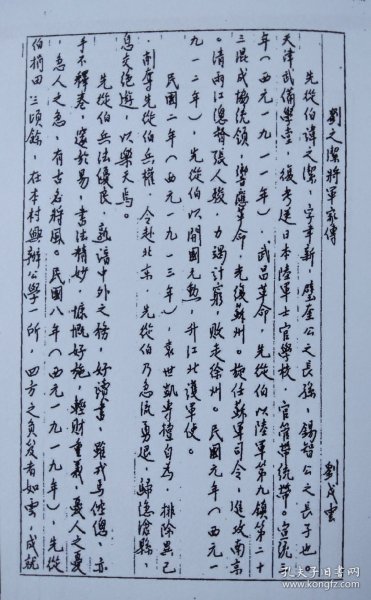 劉之潔將軍家傳　　劉成雲
先從伯諱之潔，字聿新，璧奎公之長孫，錫智公之長子也。
天津武備學堂，後考送日本陸軍士官學校，官管帶統帶。宣統三
年（西元一九一一年），武昌革命，先從伯以陸軍第九鎮第二十
三混成協統領，響應革命，光復蘇州。旋任蘇軍司令，進攻南京
。清兩江總督張人駿，力竭計窮，敗走徐州。民國元年（西元一
九一二年），先從伯以開國元勳，升江北護軍使。
民國二年（西元一九一三年），袁世凱專擅自為，排除異己
，削奪先從伯兵權，令赴北京，先從伯乃急流勇退，歸隱滄縣，
息交絕遊，以樂天焉。
先從伯兵法優良，熟諳中外之務，好讀書，雖戎馬倥傯，亦
手不釋卷，邃於易，書法精妙，慷慨好施，輕財重義，憂人之憂
，急人之急，有古名將風。民國八年（西元一九一九年），先從
伯捐田三頃餘，在本村興辦公學一所，四方之負笈者如雲，成就
孔夫子旧书网